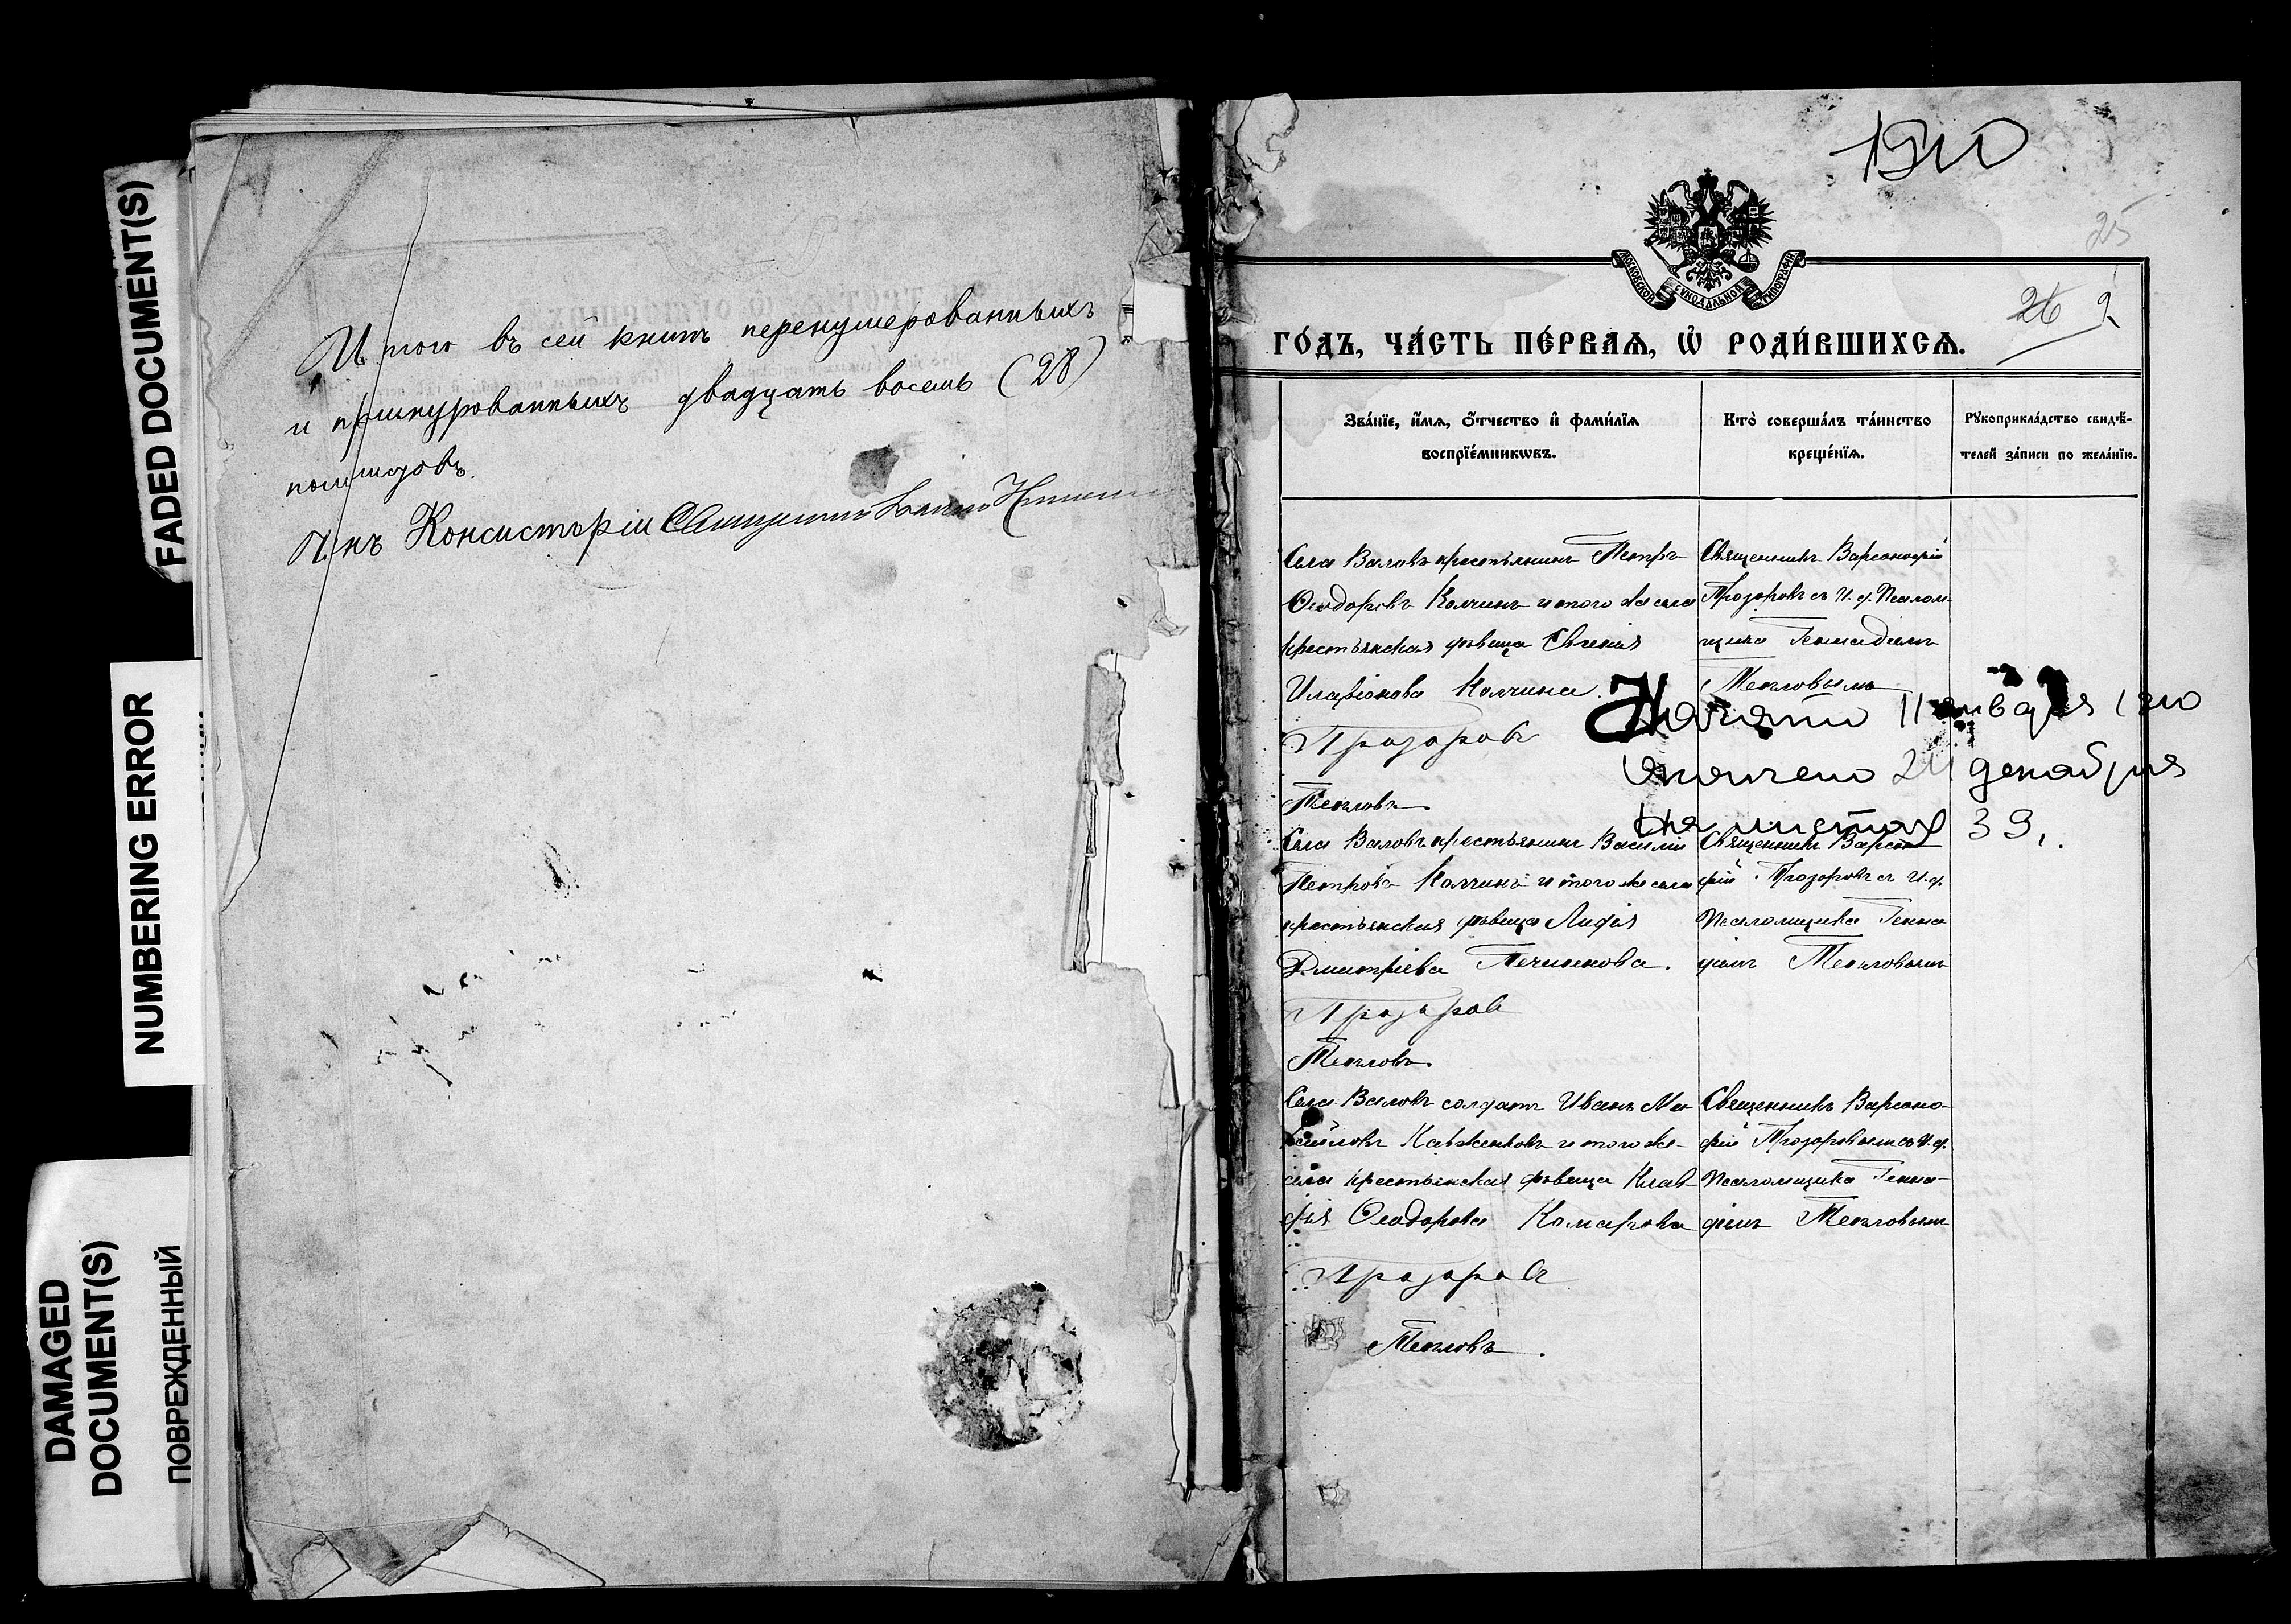 FADED DOCUMENT(S)
NUMBERING ERROR
DAMAGED
DOCUMENT(S)
ПОВРЕЖДЕННЫЙ
Итого въ сей книгѣ перенумерованныхъ
и прошнурованныхъ двадцать восемь (28)
полистовъ.
Члнъ Консисторіи Священникъ
1910
25
МОСКОВСКОЙ СѴНОДАЛЬНОЙ ТИПОГРАФІИ
26 9
ГО́ДЪ, ЧА́СТЬ ПЕ́РВАѦ, Ѡ҆ РОДИ́ВШИХСѦ.
Зва́нїе, и҆́мѧ, ѻ҆́тчество и҆ фами́лїѧ
воспрїе́мникѡвъ.
Кто̀ соверша́лъ та́инство
креще́нїѧ.
Рꙋкоприкла́дство свидѣ́-
телей за́писи по жела́нїю.
Села Валовъ крестьянинъ Петръ
Ѳеодоровъ Колчинъ и того же села
крестьянская дѣвица Евгенія
Иларіонова Колчина.
Прозоровъ
Тепловъ.
Священникъ Варсонофій
Прозоровъ съ И. д. Псалом-
щика Геннадіемъ
Тепловымъ
Начато 11 января 1910
окончено 24 декабря
На листах 39.
Села Валовъ крестьянинъ Василій
Петровъ Колчинъ и того же села
крестьянская дѣвица Лидія
Дмитріева Печинкова.
Прозоров
Тепловъ.
Священникъ Варсоно
фій Прозоровъ съ И. д.
Псаломщика Генна
діемъ Тепловымъ
Села Валовъ солдатъ Иванъ
и того же
села крестьянская дѣвица Клав-
дія Ѳеодорова Комарова
Прозоровъ
Тепловъ.
Священникъ Варсоно-
фій Прозоровымъ съ И. д.
Псаломщика Генна-
діемъ Тепловымъ